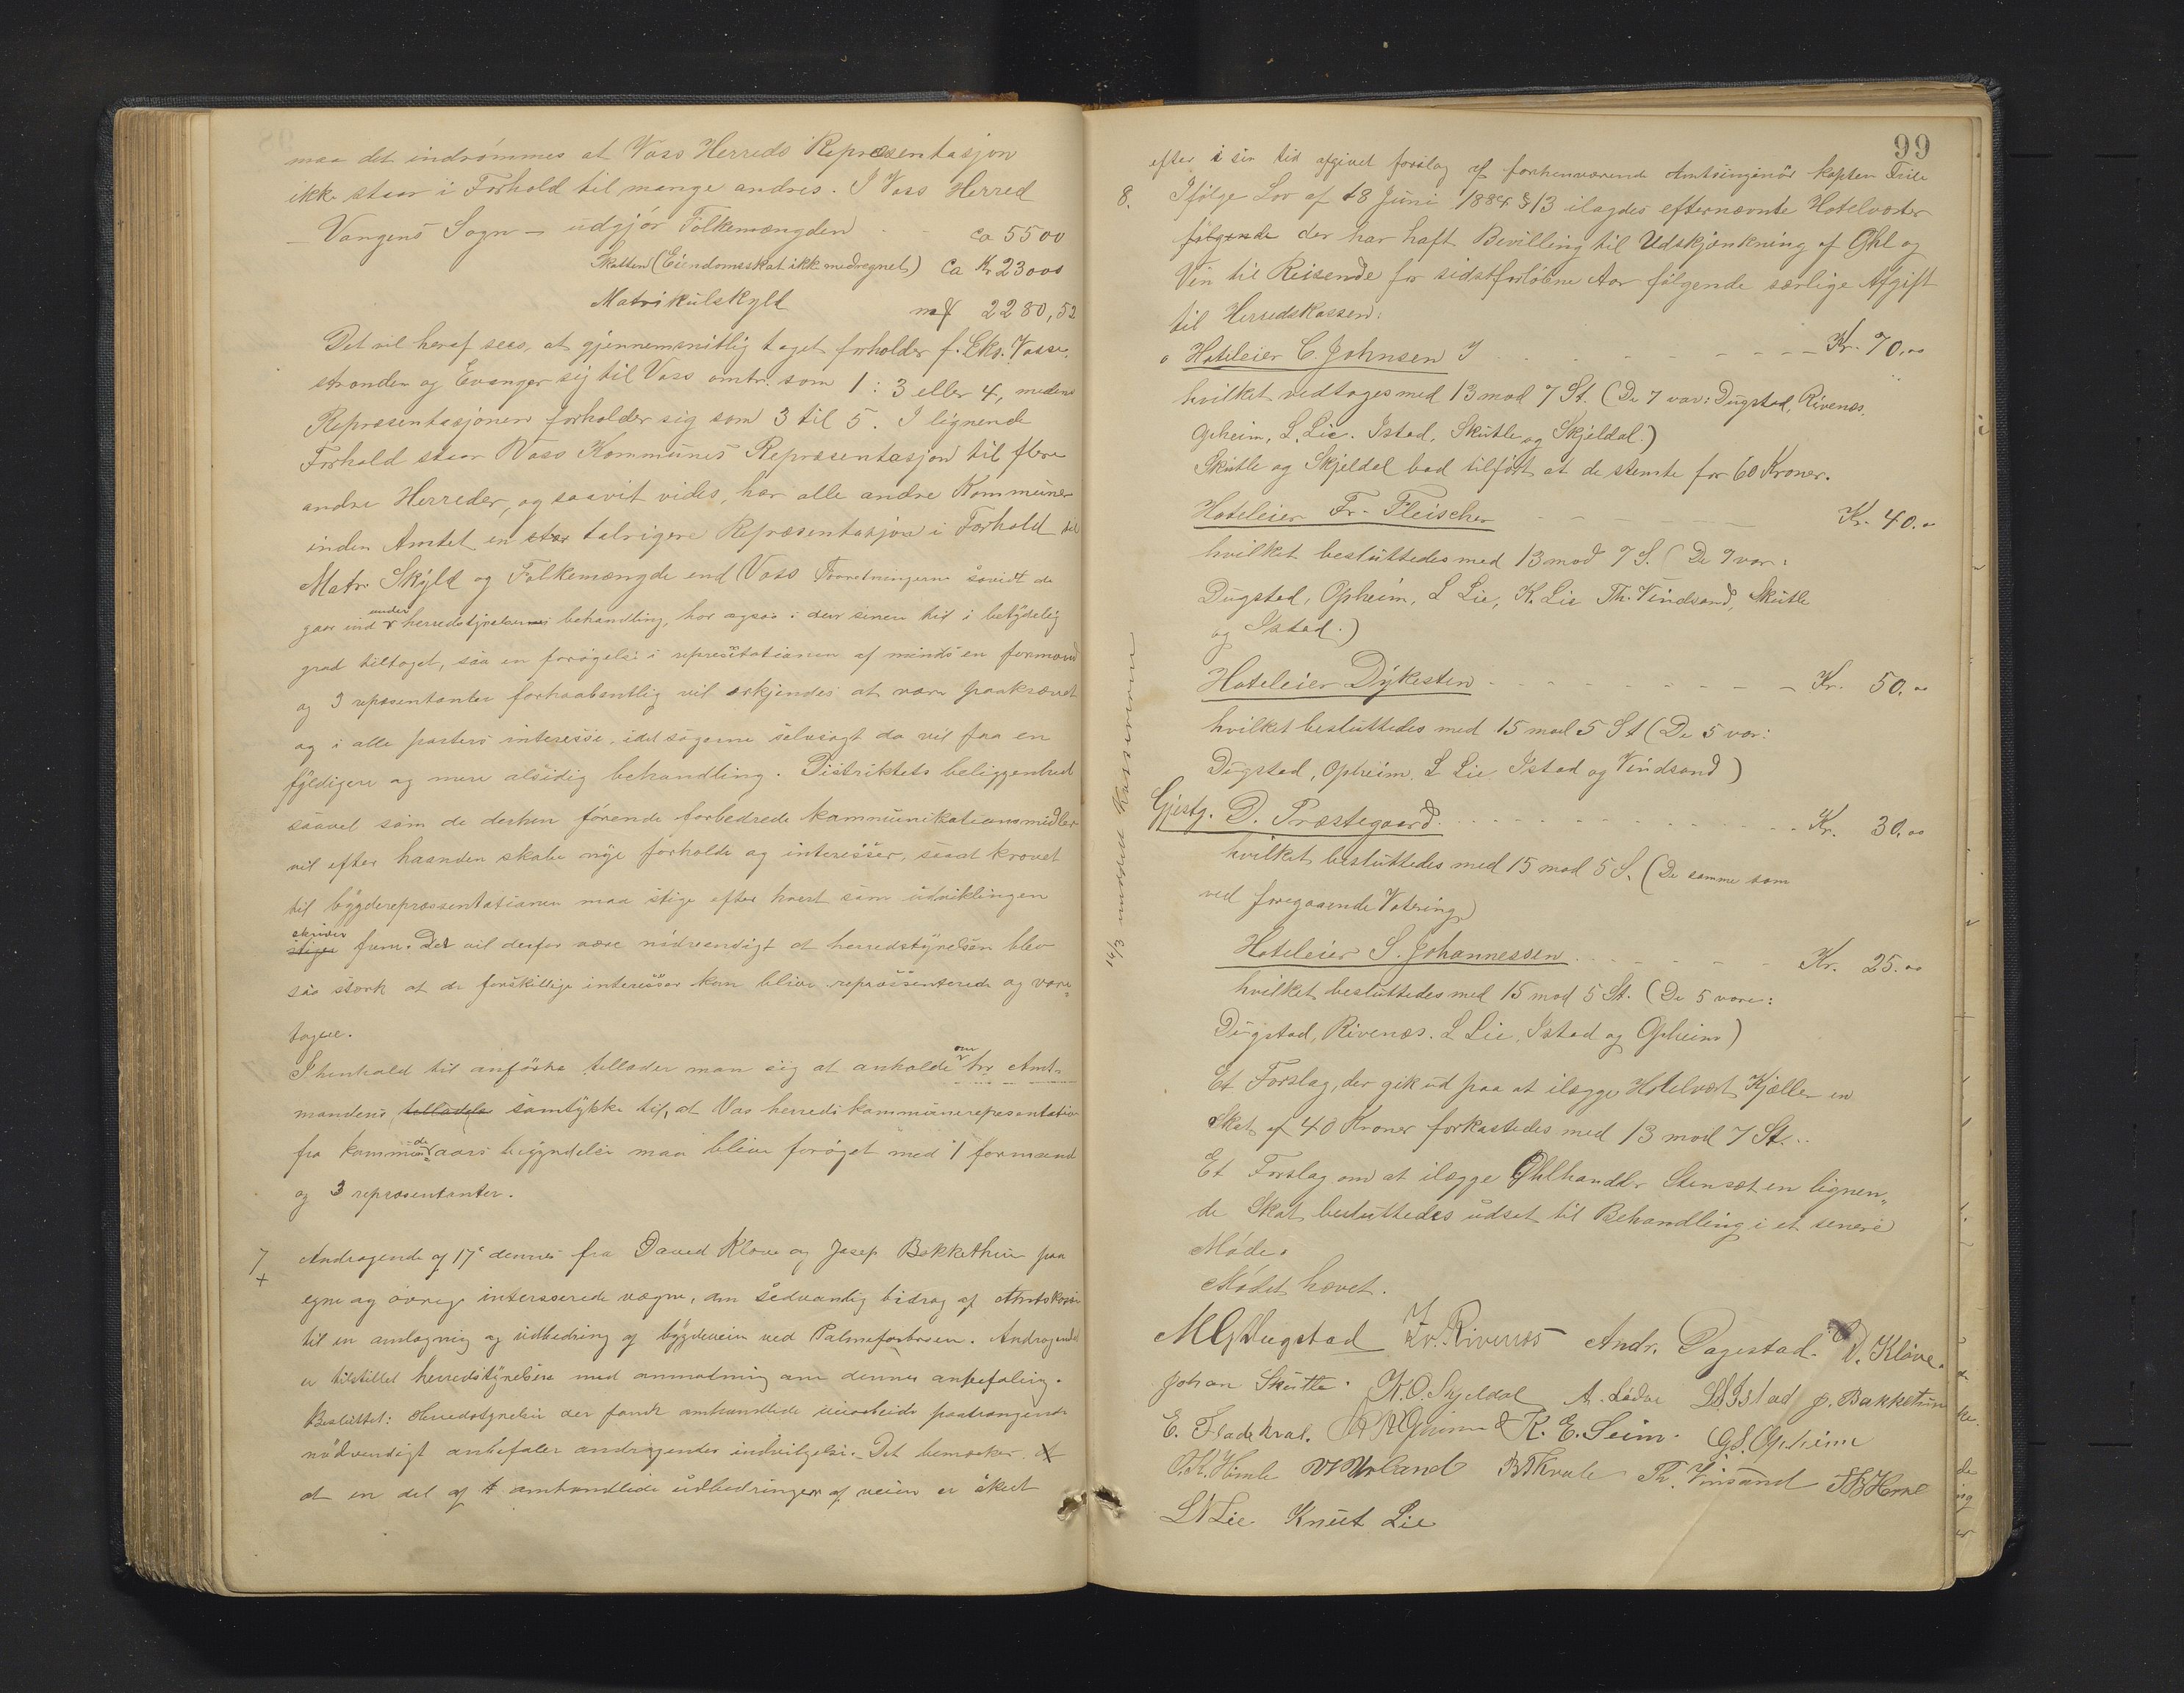 maa det indrømmes at Voss Herreds Repræsentasjon
ikke staar i Forhold til mange andres. I Voss Herred
– Vangens Sogn – udgjør Folkemængden ca 5500
Skatten (Eiendomsskat ikke medregnet) Ca Kr 23000
Matrikulskyld mk 2280,52
Det vil heraf sees, at gjennemsnitlig taget forholder f. Eks. Vosse-
stranden og Evanger sig til Voss omtr. som 1 : 3 eller 4, medens
Repræsentasjonen forholder sig som 3 til 5. I lignende
Forhold staar Voss Kommunes Repræsentasjon til flere
andre Herreder, og saavit vides, har alle andre Kommuner
inden Amtet en stør talrigere Repræsentasjon i Forhold til
Matr. Skyld og Folkemængde end Voss Forretningerne såvidt de
gaar ind under herredstyrelsernes behandling, har ogsaa i den senere tid i betydelig
grad tiltaget, saa en forøgelse i represetationen af mindst en formand
og 3 repæsentanter forhaabentlig vil erkjendes at være paakrævet
og i alle parters interesse, idet sagerne selvsagt da vil faa en
fyldigere og mere alsidig behandling. Distriktets beliggenhed
saavel som de derhen førende forbedrede kommunikationsmidler
vil efter haanden skabe nye forholde og interesser, saaat kravet
til bygderepræsentationen maa stige efter hvert som udviklingen
stiger skrider frem. Det vil derfor være nødvendigt at herredstyrelsen blev
saa stærk at de forskillige interesser kan blive repræssenterede og vare-
tagne.
I henhold til anførte tillader man sig at anholde om hr Amt-
mandens tilladelse samtykke til, at Vos herreds kommunerepresentation
fra kommende aars begyndelse maa blive forøget med 1 formand
og 3 repræsentanter.
7
+
Andragende af 17de dennes fra David Kløve og Josep Bakkethun paa
egne og øvrige interesserede vægne, om sedvanlig bidrag af Amtskassen
til en omlægning og udbedring af bygdeveien ved Palmefossbroen. Andragendet
er tilstillet herredstyrelsen med anmodning om dennes anbefaling.
Besluttet: Herredstyrelsen der fandt omhandlede veiarbeide paatrængende
nødvendigt anbefaler andragendes indvilgelse. Det bemærkes at
at en del af omhandlede udbedringer af veien er skeet
99
efter i sin tid afgivet forslag af forhenværende Amtsingeniør kaptein Friis
8. Ifølge Lov af 18 Juni 1884 § 13 ilagdes efternævnte Hotelværter
følgende der har haft Bevilling til Udskjænkning af Øhl og
Vin til Reisende for sidstforløbne Aar følgende særlige Afgift
til Herredskassen:
Hoteleier C. Johnsen I Kr. 70.00
hvilket vedtoges med 13 mod 7 St. (De 7 var: Dugstad, Rivenes,
Opheim, L. Lie. Istad, Skutle og Skjeldal.)
Skutle og Skjeldal bad tilført at de stemte for 60 Kroner.
Hoteleier Fr. Fleischer Kr. 40.00
hvilket besluttedes med 13 mod 7 S. (De 7 var:
Dugstad, Opheim, L Lie, K. Lie Th. Vindsand, Skutle
og Istad.)
Hoteleier Dykesten Kr. 50.00
hvilket besluttedes med 15 mod 5 St (De 5 var:
Dugstad, Opheim, L Lie, Istad og Vindsand)
Gjestg. D. Præstegaard Kr. 30.00
hvilket besluttedes med 15 mod 5 S. (De samme som
ved foregaaende Votering)
Hoteleier S. Johannessen Kr. 25.00
hvilket besluttedes med 15 mod 5 St. (De 5 vare:
Dugstad, Rivenes. L Lie, Istad og Opheim)
Et Forslag, der gik ud paa at ilægge Hotelvært Kjeller en
Skat af 40 Kroner forkastedes med 13 mod 7 St.
Et Forslag om at ilægge Øhlhandler Stensæt en lignen-
de Skat besluttedes udsat til Behandling i et senere
Møde.
Mødet hævet.
14/3 meddelt Kassereren
M G Dugstad Iv. Rivenes Andr. Dagestad. D. Kløve.
Johan Skutle. K. O. Skjeldal A. Lødve LS Istad J. Bakkethun
E. Fladekval. K. E. Seim. GS. Opheim
O.K. Himle Urland B Kvale Th. Vinsand Horne
LN Lie Knut Lie